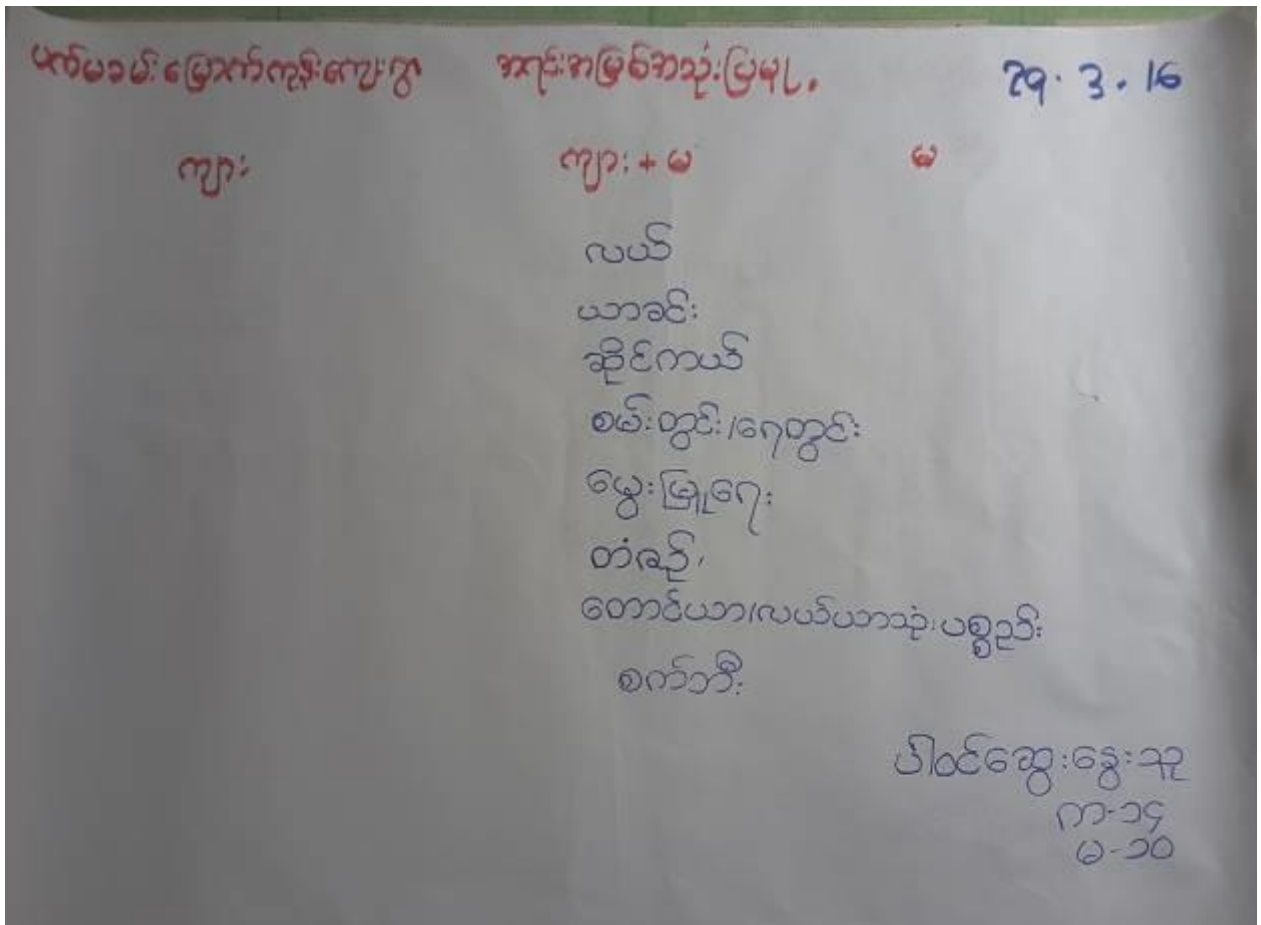 ပက်မခမ်းမြောက်ကုန်းကျေးရွာ အရင်းအမြစ်အသုံးပြုမှု. 29.3.16
ကျား ကျား+မ မ
လယ်
ယာခင်း
ဆိုင်ကယ်
စမ်းတွင်း/ရေတွင်း
မွေးမြူရေး
တံစဉ်,
တောင်ယာ/လယ်ယာသုံးပစ္စည်း
စက်ဘီး
ပါဝင်ဆွေးနွေးသူ
ကာ-၁၄
မ-၁၀